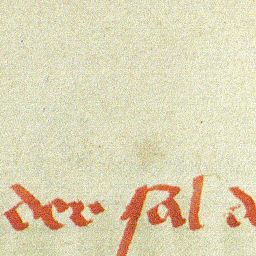 der sal d